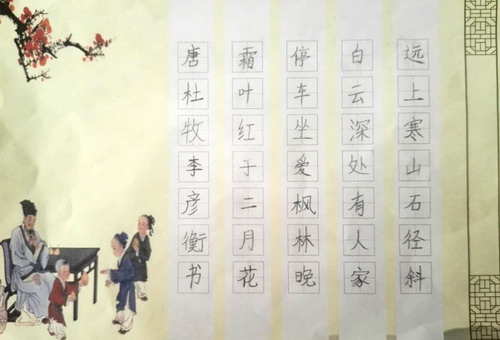 远上寒山石径斜
白云深处有人家
停车坐爱枫林晚
霜叶红于二月花
唐杜牧李彦衡书